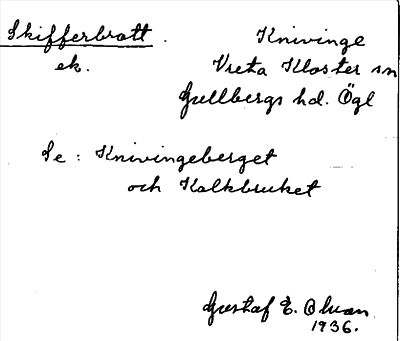 Skifferbrott. Knivinge
ek. Vreta Kloster sn
Gullbergs hd. Ögl
Se: Knivingeberget
och Kalkbruket
Gustaf E.
1936.